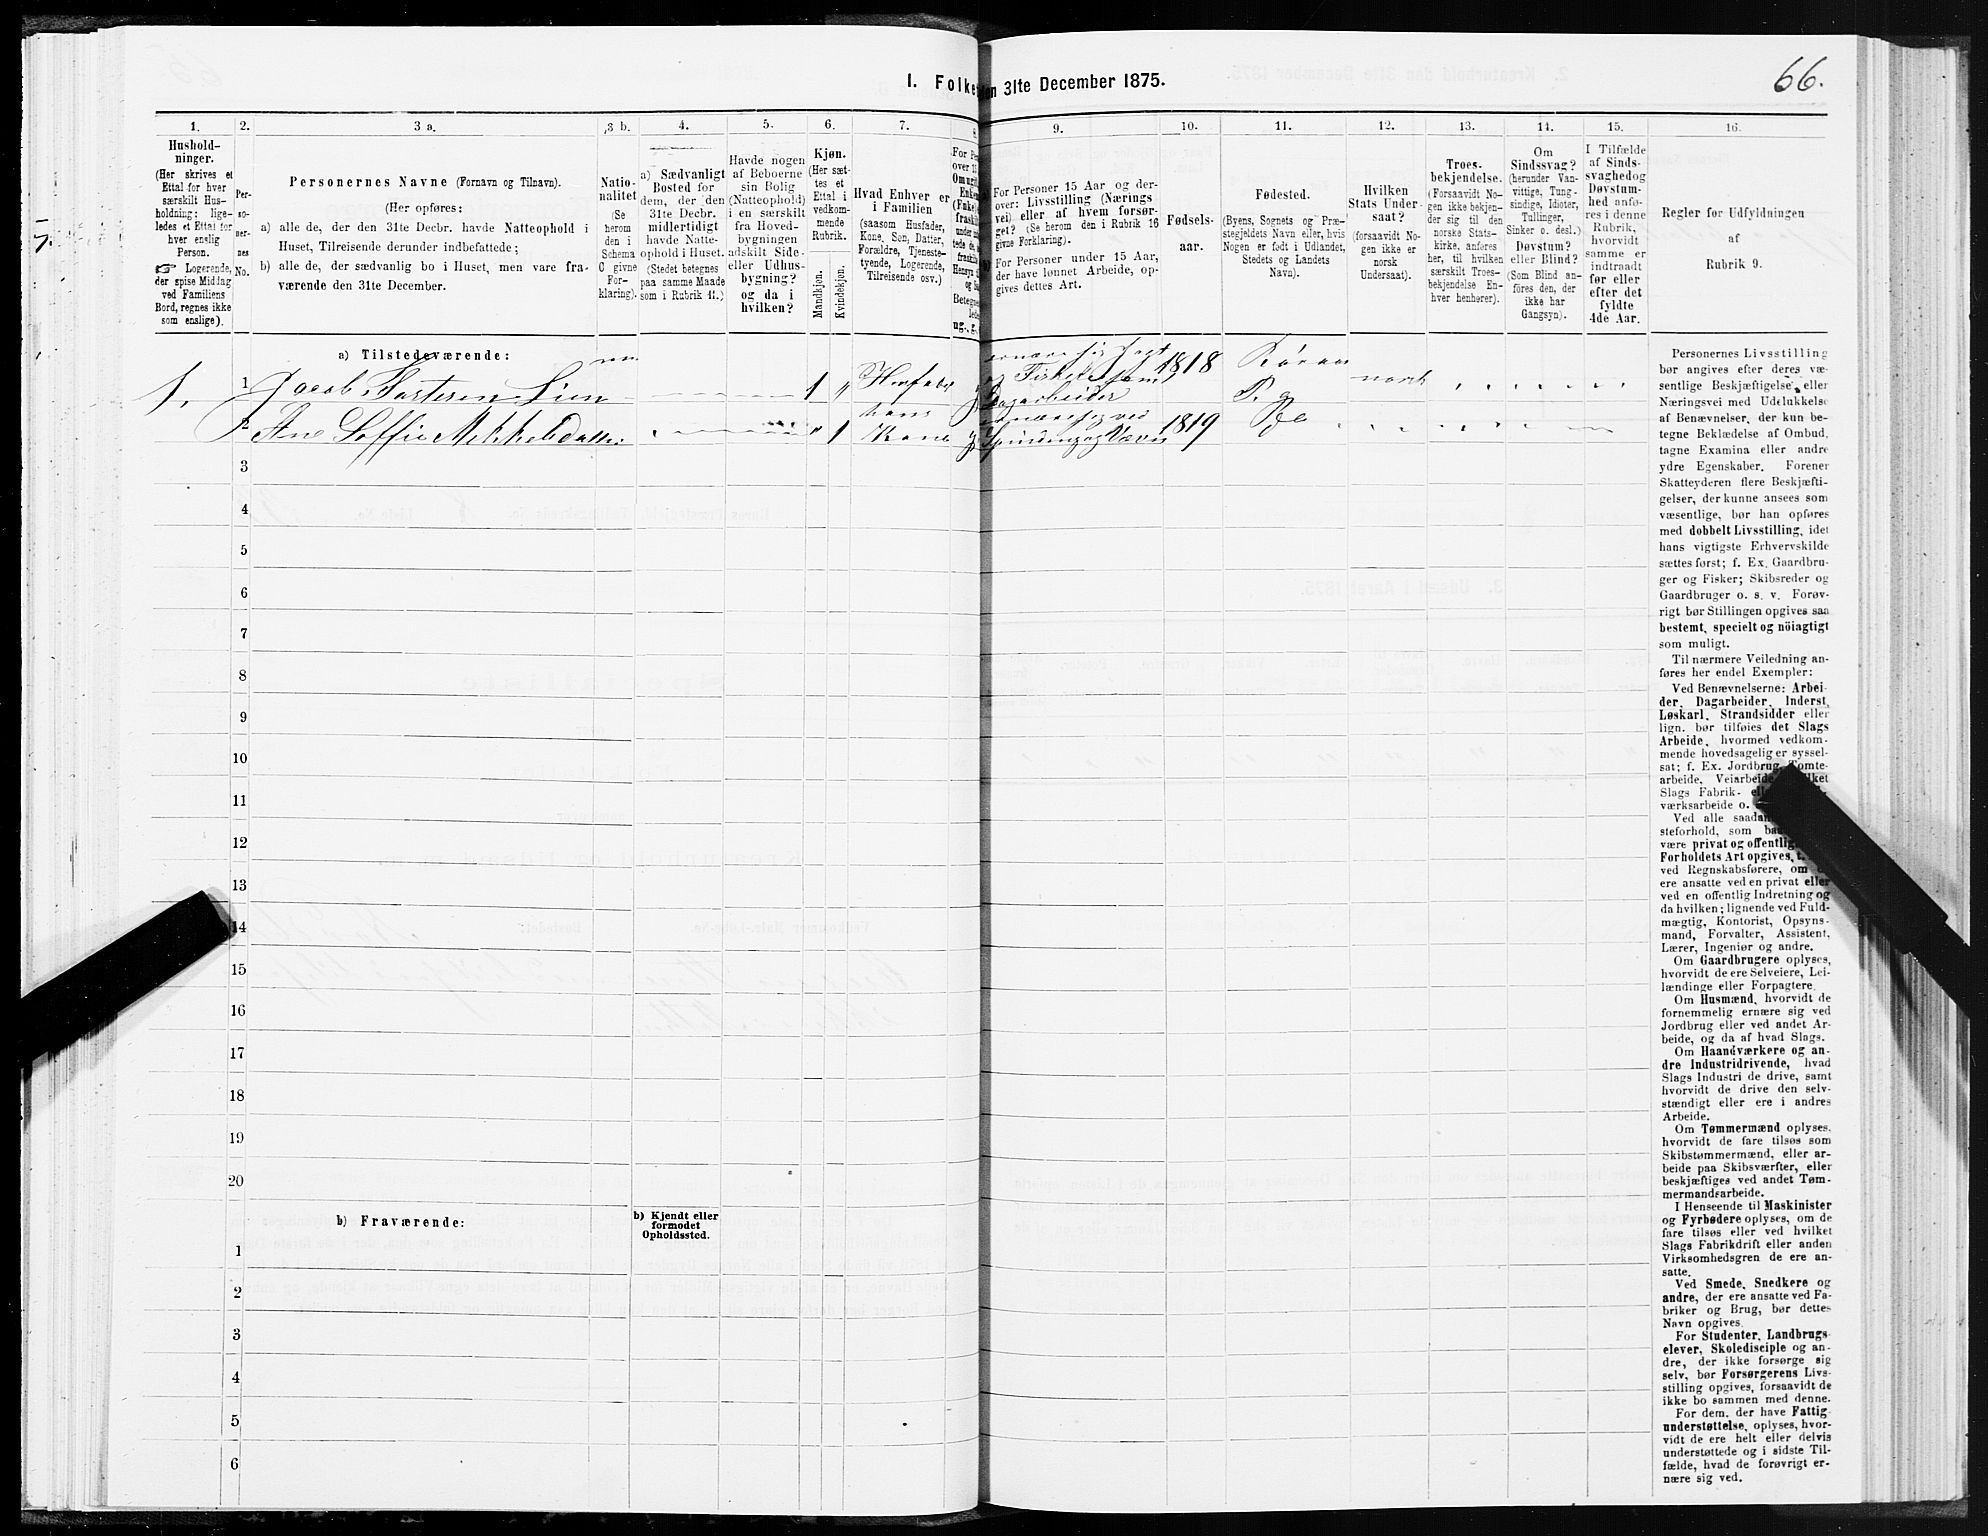 I. Folke
den 31te December 1875.
66.
1.
2.
3 a.
3 b.
4.
5.
6.
7.
8.
9.
10.
11.
12.
13.
14.
15.
16.
Hushold-
ninger.
(Her skrives et
Ettal for hver
særskilt Hus-
holdning; lige-
ledes et Ettal for
hver enslig
Person.
☞ Logerende,
der spise Middag
ved Familiens
Bord, regnes ikke
som enslige).
Per-
so-
ner-
nes
No.
Personernes Navne (Fornavn og Tilnavn).
(Her opføres:
a) alle de, der den 31te Decbr. havde Natteophold i
Huset, Tilreisende derunder indbefattede;
b) alle de, der sædvanlig bo i Huset, men vare fra-
værende den 31te December.
Natio-
nalitet
(Se
herom
den i
Schema
C givne
For-
klaring).
a) Sædvanligt
Bosted for
dem, der den
31te Decbr.
midlertidigt
havde Natte-
ophold i Huset.
(Stedet betegnes
paa samme Maade
som i Rubrik 11.)
Havde nogen
af Beboerne
sin Bolig
(Natteophold)
i en særskilt
fra Hoved-
bygningen
adskilt Side-
eller Udhus-
bygning?
og da i
hvilken?
Kjøn.
(Her sæt-
tes et
Ettal i
vedkom-
mende
Rubrik.
Mandkjøn.
Kvindekjøn.
Hvad Enhver er
i Familien
(saasom Husfader,
Kone, Søn, Datter,
Forældre, Tjeneste-
tyende, Logerende,
Tilreisende osv.)
For Personer 15 Aar og der-
over: Livsstilling (Nærings
vei) eller af hvem forsør-
get? (Se herom den i Rubrik 16
givne Forklaring).
For Personer under 15 Aar,
der have lønnet Arbeide, op-
gives dettes Art.
Fødsels-
aar.
Fødested.
(Byens, Sognets og Præ-
stegjeldets Navn eller, hvis
Nogen er født i Udlandet,
Stedets og Landets
Navn).
Hvilken
Stats Under-
saat?
(forsaavidt No-
gen ikke er
norsk
Undersaat).
Troes-
bekjendelse.
(Forsaavidt No-
gen ikke bekjen-
der sig til den
norske Stats-
kirke, anføres
her, til hvilken
særskilt Troes-
bekjendelse En-
hver henhører).
Om
Sindssvag?
(herunder Van-
vittige, Tung-
sindige, Idioter,
Tullinger,
Sinker o. desl.)
Døvstum?
eller Blind?
(Som Blind an-
føres den, der
ikke har
Gangsyn).
I Tilfælde
af Sinds-
svaghed og
Døvstum-
hed anfø-
res i denne
Rubrik,
hvorvidt
samme er
indtraadt
før eller
efter det
fyldte
4de Aar.
Regler for Udfyldningen
af
Rubrik 9.
a) Tilstedeværende:
1. 1 Jacob Lien 1 " og Fisker 1818 Røraas norsk
Dagarbeider
hans
2 Ane Soffie Mekkelsdatter " 1 Kone g Spinding og Væv 1819
3
4
5
6
7
8
9
10
11
12
13
14
15
16
17
18
19
20
b) Fraværende:
b) Kjendt eller
formodet
Opholdssted.
1
2
3
4
5
6
Personernes Livsstilling
bør angives efter deres væ-
sentlige Beskjæftigelse eller
Næringsvei med Udelukkelse
af Benævnelser, der kun be-
tegne Beklædelse af Ombud,
tagne Examina eller andre
ydre Egenskaber. Forener
Skatteyderen flere Beskjæfti-
gelser, der kunne ansees som
væsentlige, bør han opføres
med dobbelt Livsstilling, idet
hans vigtigste Erhvervskilde
sættes først; f. Ex. Gaardbru-
ger og Fisker; Skibsreder og
Gaardbruger o. s. v. Forøv-
rigt bør Stillingen opgives saa
bestemt, specielt og nöiagtigt
som muligt.
Til nærmere Veiledning an-
føres her endel Exempler:
Ved Benævnelserne: Arbei-
der, Dagarbeider, Inderst,
Løskarl, Strandsidder eller
lign. bør tilføies det Slags
Arbeide, hvormed vedkom-
mende hovedsagelig er syssel-
sat; f. Ex. Jordbrug, Tomte-
arbeide, Veiarbeide,
Slags Fabrik-
værksarbeide o.
Ved alle
steforhold, som
være privat og offentlig
Forholdets Art opgives,
ved Regnskabsførere, om
ere ansatte ved en privat eller
ved en offentlig Indretning og
da hvilken; lignende ved Fuld-
mægtig, Kontorist, Opsyns-
mand, Forvalter, Assistent,
Lærer, Ingeniør og andre.
Om Gaardbrugere oplyses,
hvorvidt de ere Selveiere, Lei-
lændinge eller Forpagtere.
Om Husmænd, hvorvidt de
fornemmelig ernære sig ved
Jordbrug eller ved andet Ar-
beide, og da af hvad Slags.
Om Haandværkere og an-
dre Industridrivende, hvad
Slags Industri de drive, samt
hvorvidt de drive den selv-
stændigt eller ere i andres
Arbeide.
Om Tømmermænd oplyses,
hvorvidt de fare tilsøs som
Skibstømmermænd, eller ar-
beide paa Skibsværfter, eller
beskjæftiges ved andet Tøm-
mermandsarbeide.
I Henseende til Maskinister
og Fyrbødere oplyses, om de
fare tilsøs eller ved hvilket
Slags Fabrikdrift eller anden
Virksomhedsgren de ere an-
satte.
Ved Smede, Snedkere og
andre, der ere ansatte ved Fa-
briker og Brug, bør dettes
Navn opgives.
For Studenter, Landbrugs-
elever, Skoledisciple og an-
dre, der ikke forsørge sig
selv, bør Forsørgerens Livs-
stilling opgives, forsaavidt de
ikke bo sammen med denne.
For dem, der have Fattig-
understøttelse, oplyses, hvor-
vidt de ere helt eller delvis
understøttede og i sidste Til-
fælde, hvad de forøvrigt er-
nære sig ved.